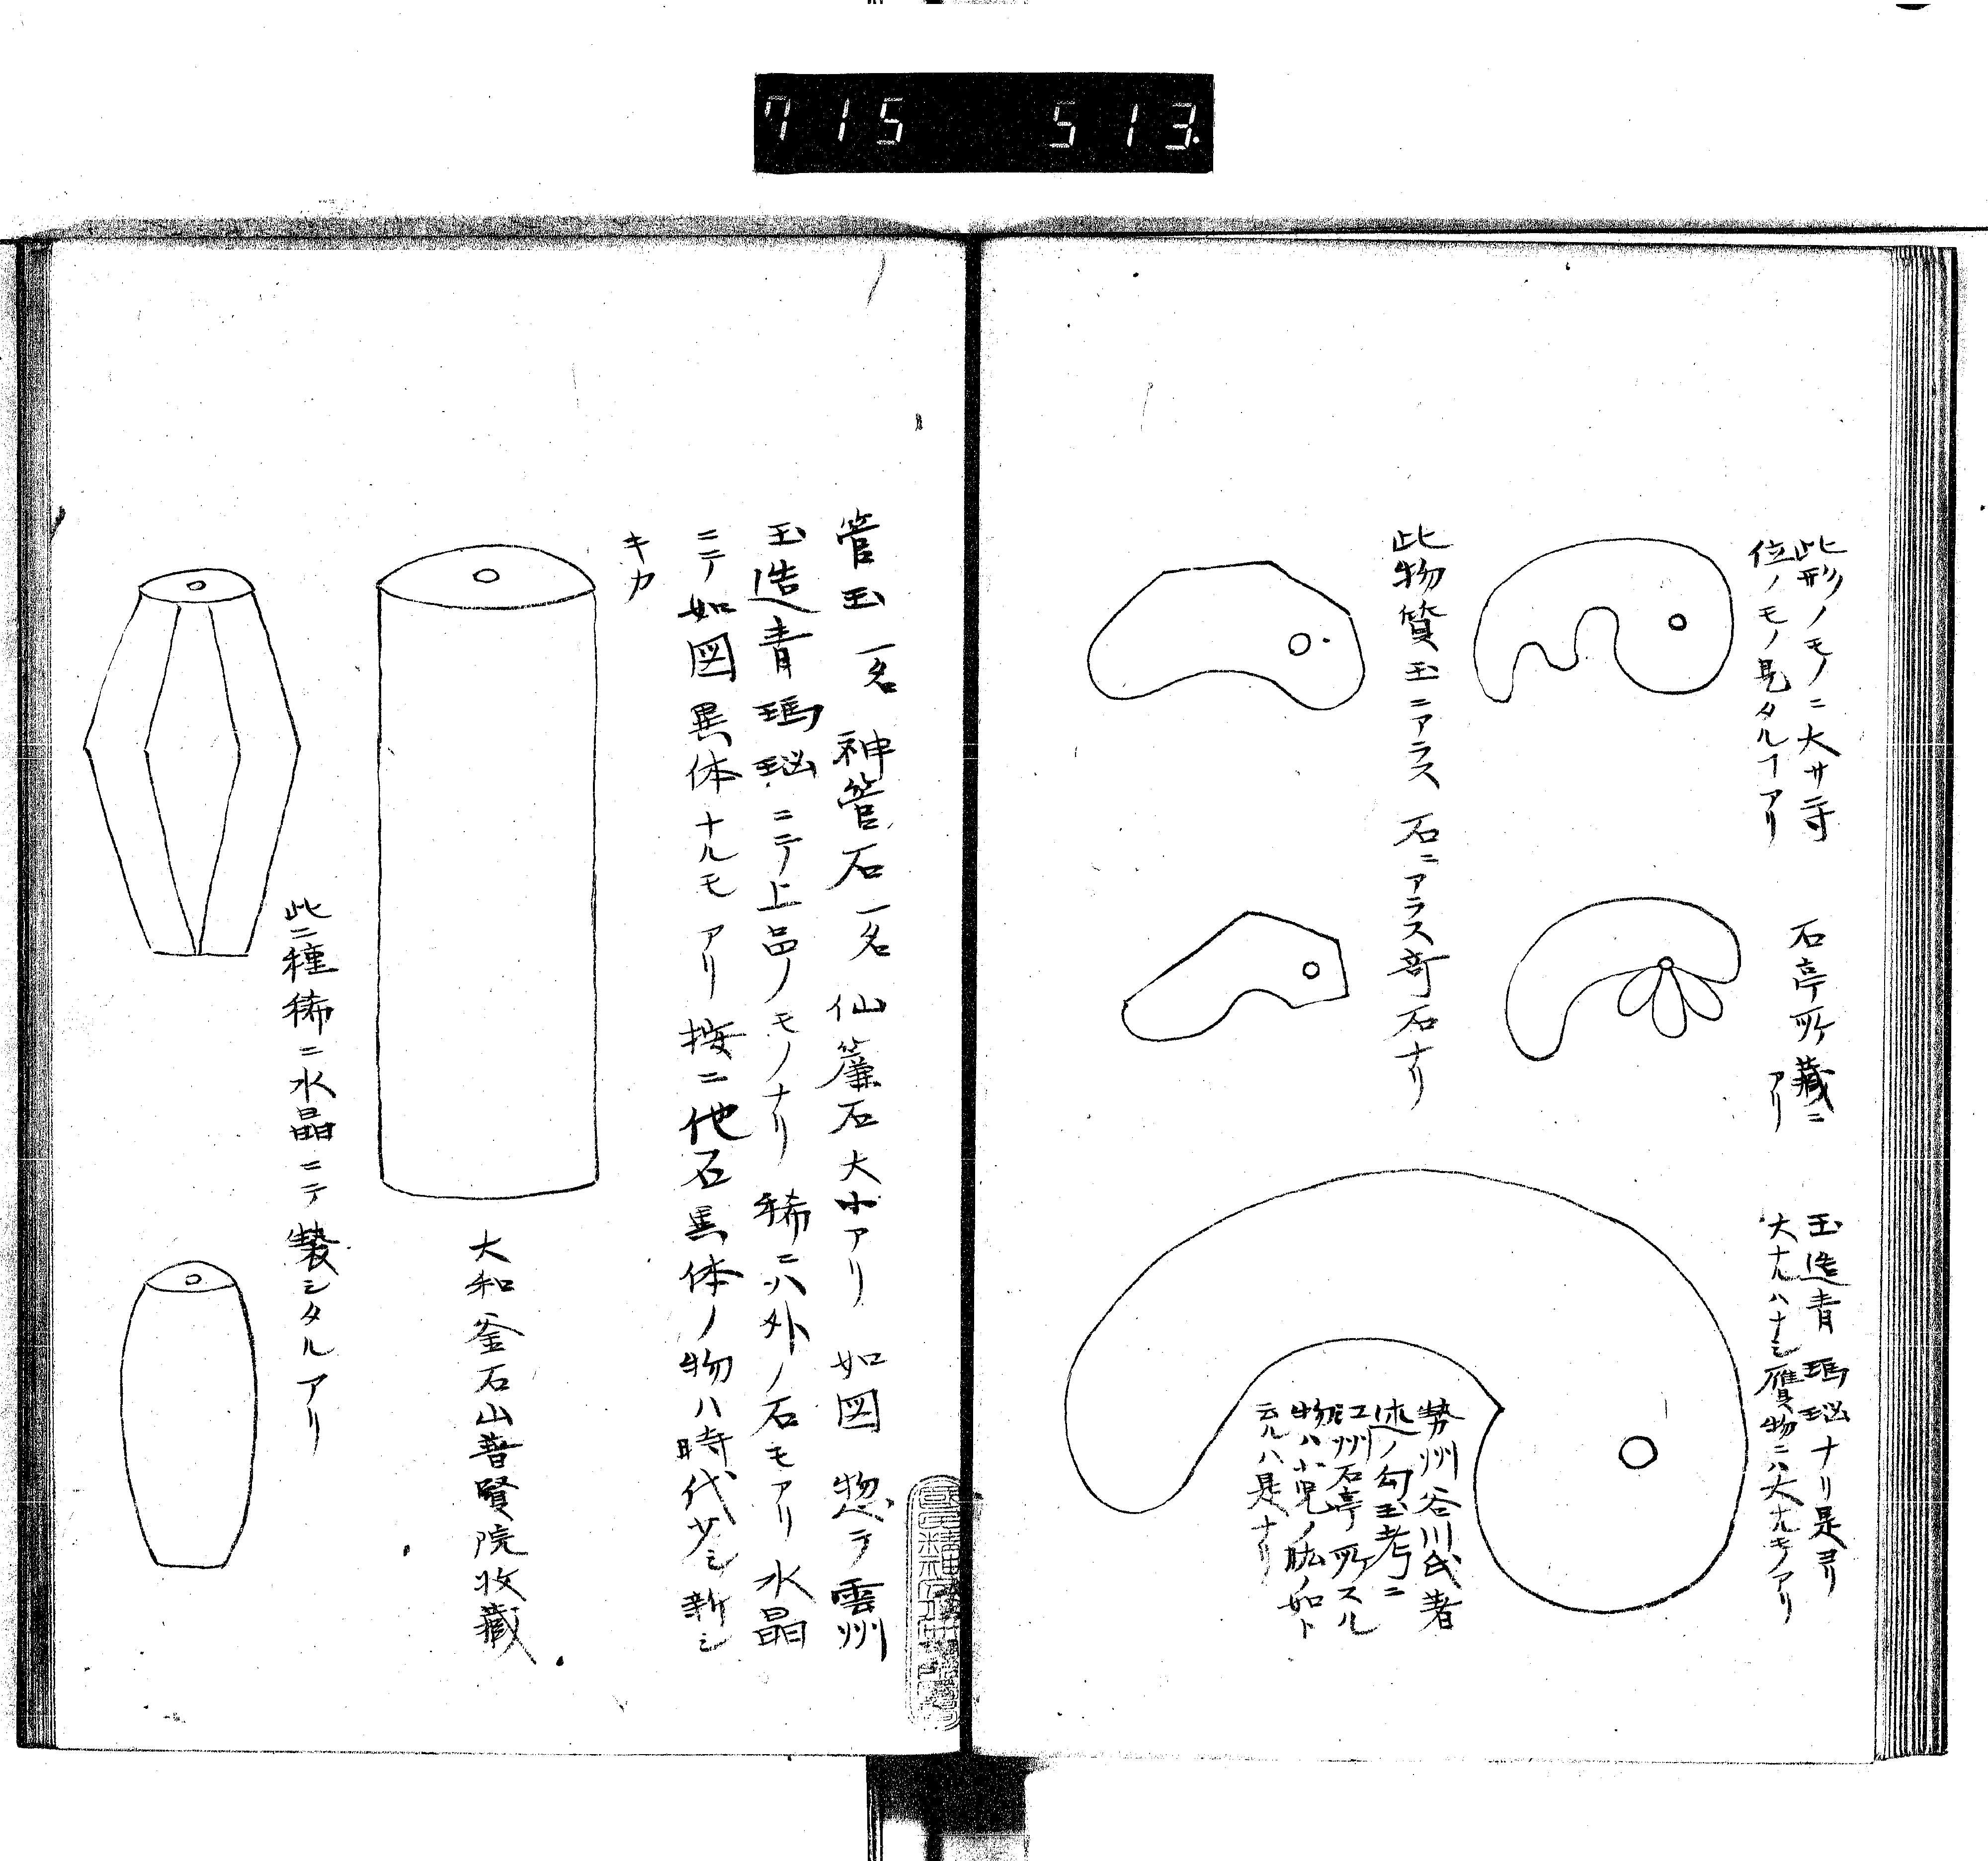 715 513.
此形ノモノニ大サ二寸
位ノモノ見タルヿアリ
石亭所藏ニ
アリ
玉造青瑪瑙ナリ是ヨリ
大ナルハナシ贋物ニハ大ナルモノアリ
勢州谷川氏著
述ノ勾玉考ニ
江州石亭所スル
物ハ小児ノ肱ノ如ト
云ルハ是ナリ
此物質玉ニアラス 石ニアラス奇石ナリ
管玉 一名 神管石 一名 仙簾石 大小アリ 如図 惣テ雲州
玉造青瑪瑙ニテ上品ノモノナリ 稀ニハ外ノ石モアリ 水晶
ニテ如図異体ナルモアリ 按ニ他石異体ノ物ハ時代少シ新シ
キカ
大和釜石山普賢院收藏
此二種稀ニ水晶ニテ製シタルアリ